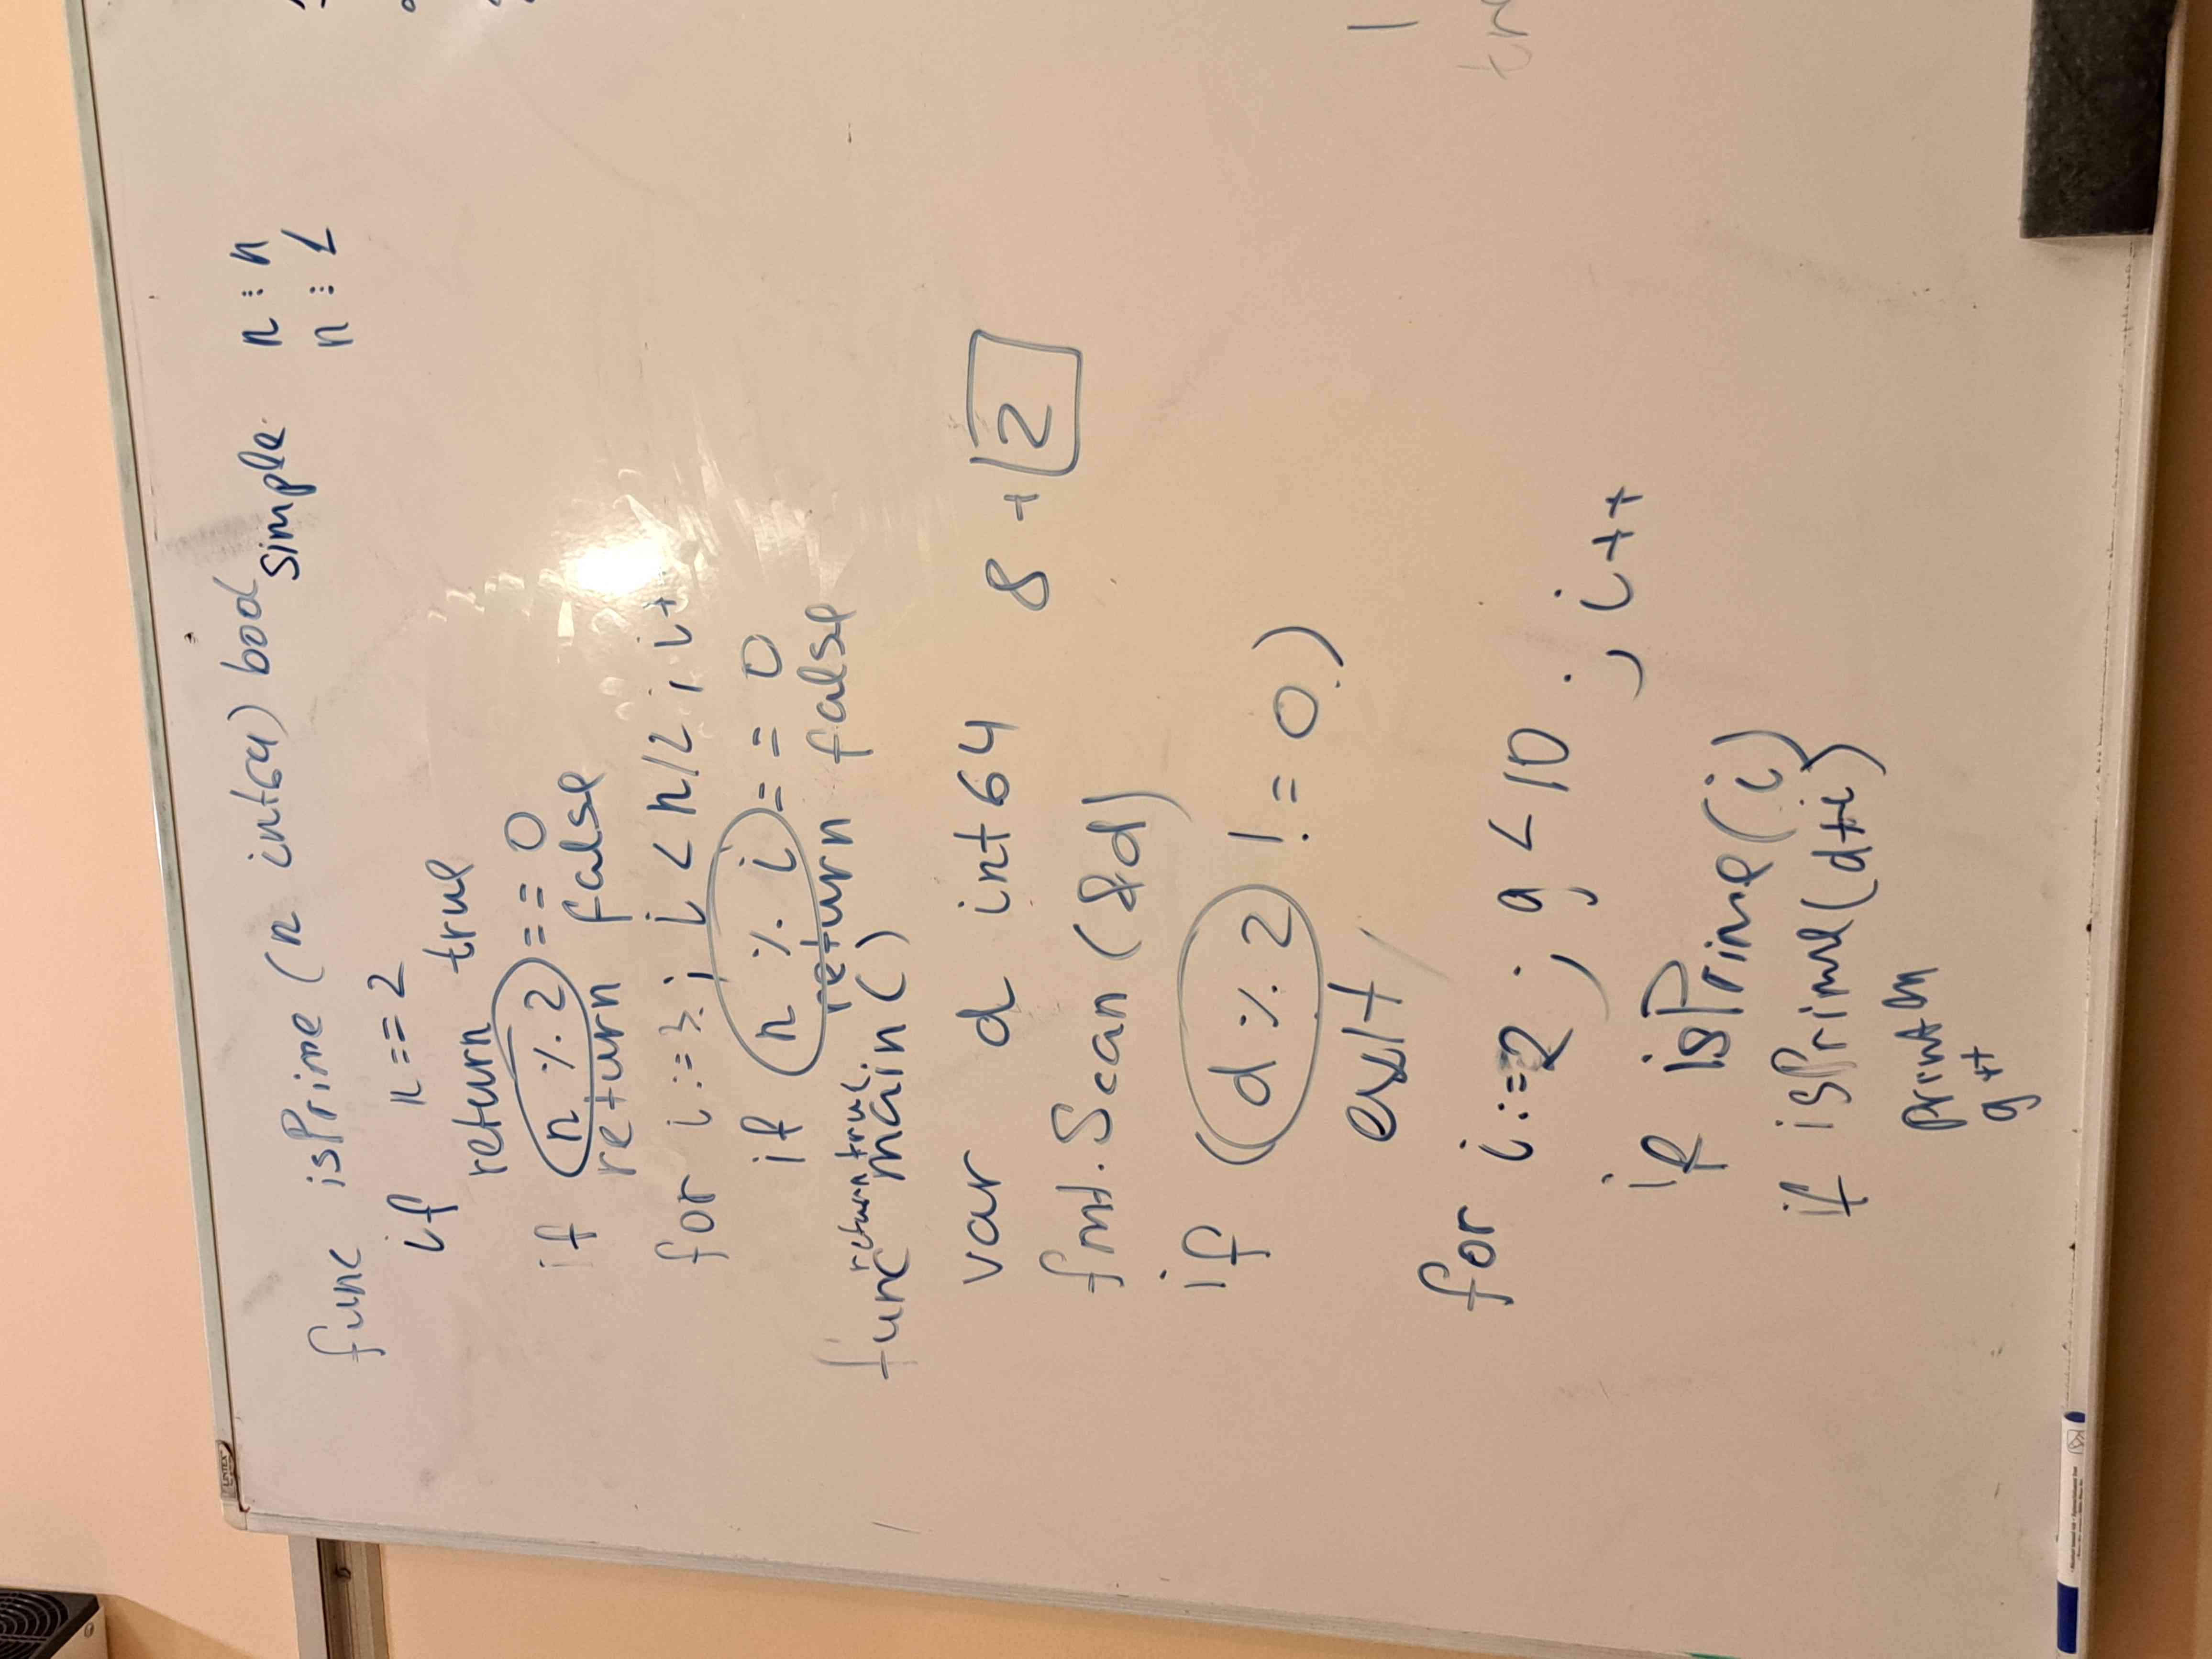 LINTEX
func isPrime (n int64) bool
simple n ⋮ n
n ⋮ 1
if n == 2
return true
if n % 2 == 0
return false
for i := 3 ; i < n/2 ; i+
if n % i == 0
return false
return true
func main ()
var d int64
8 + 2
fmt.Scan (&d)
if (d % 2 != 0)
exit
for i := 2 ; g < 10 ; i++
if isPrime (i)
if isPrime (d+i)
println
g++